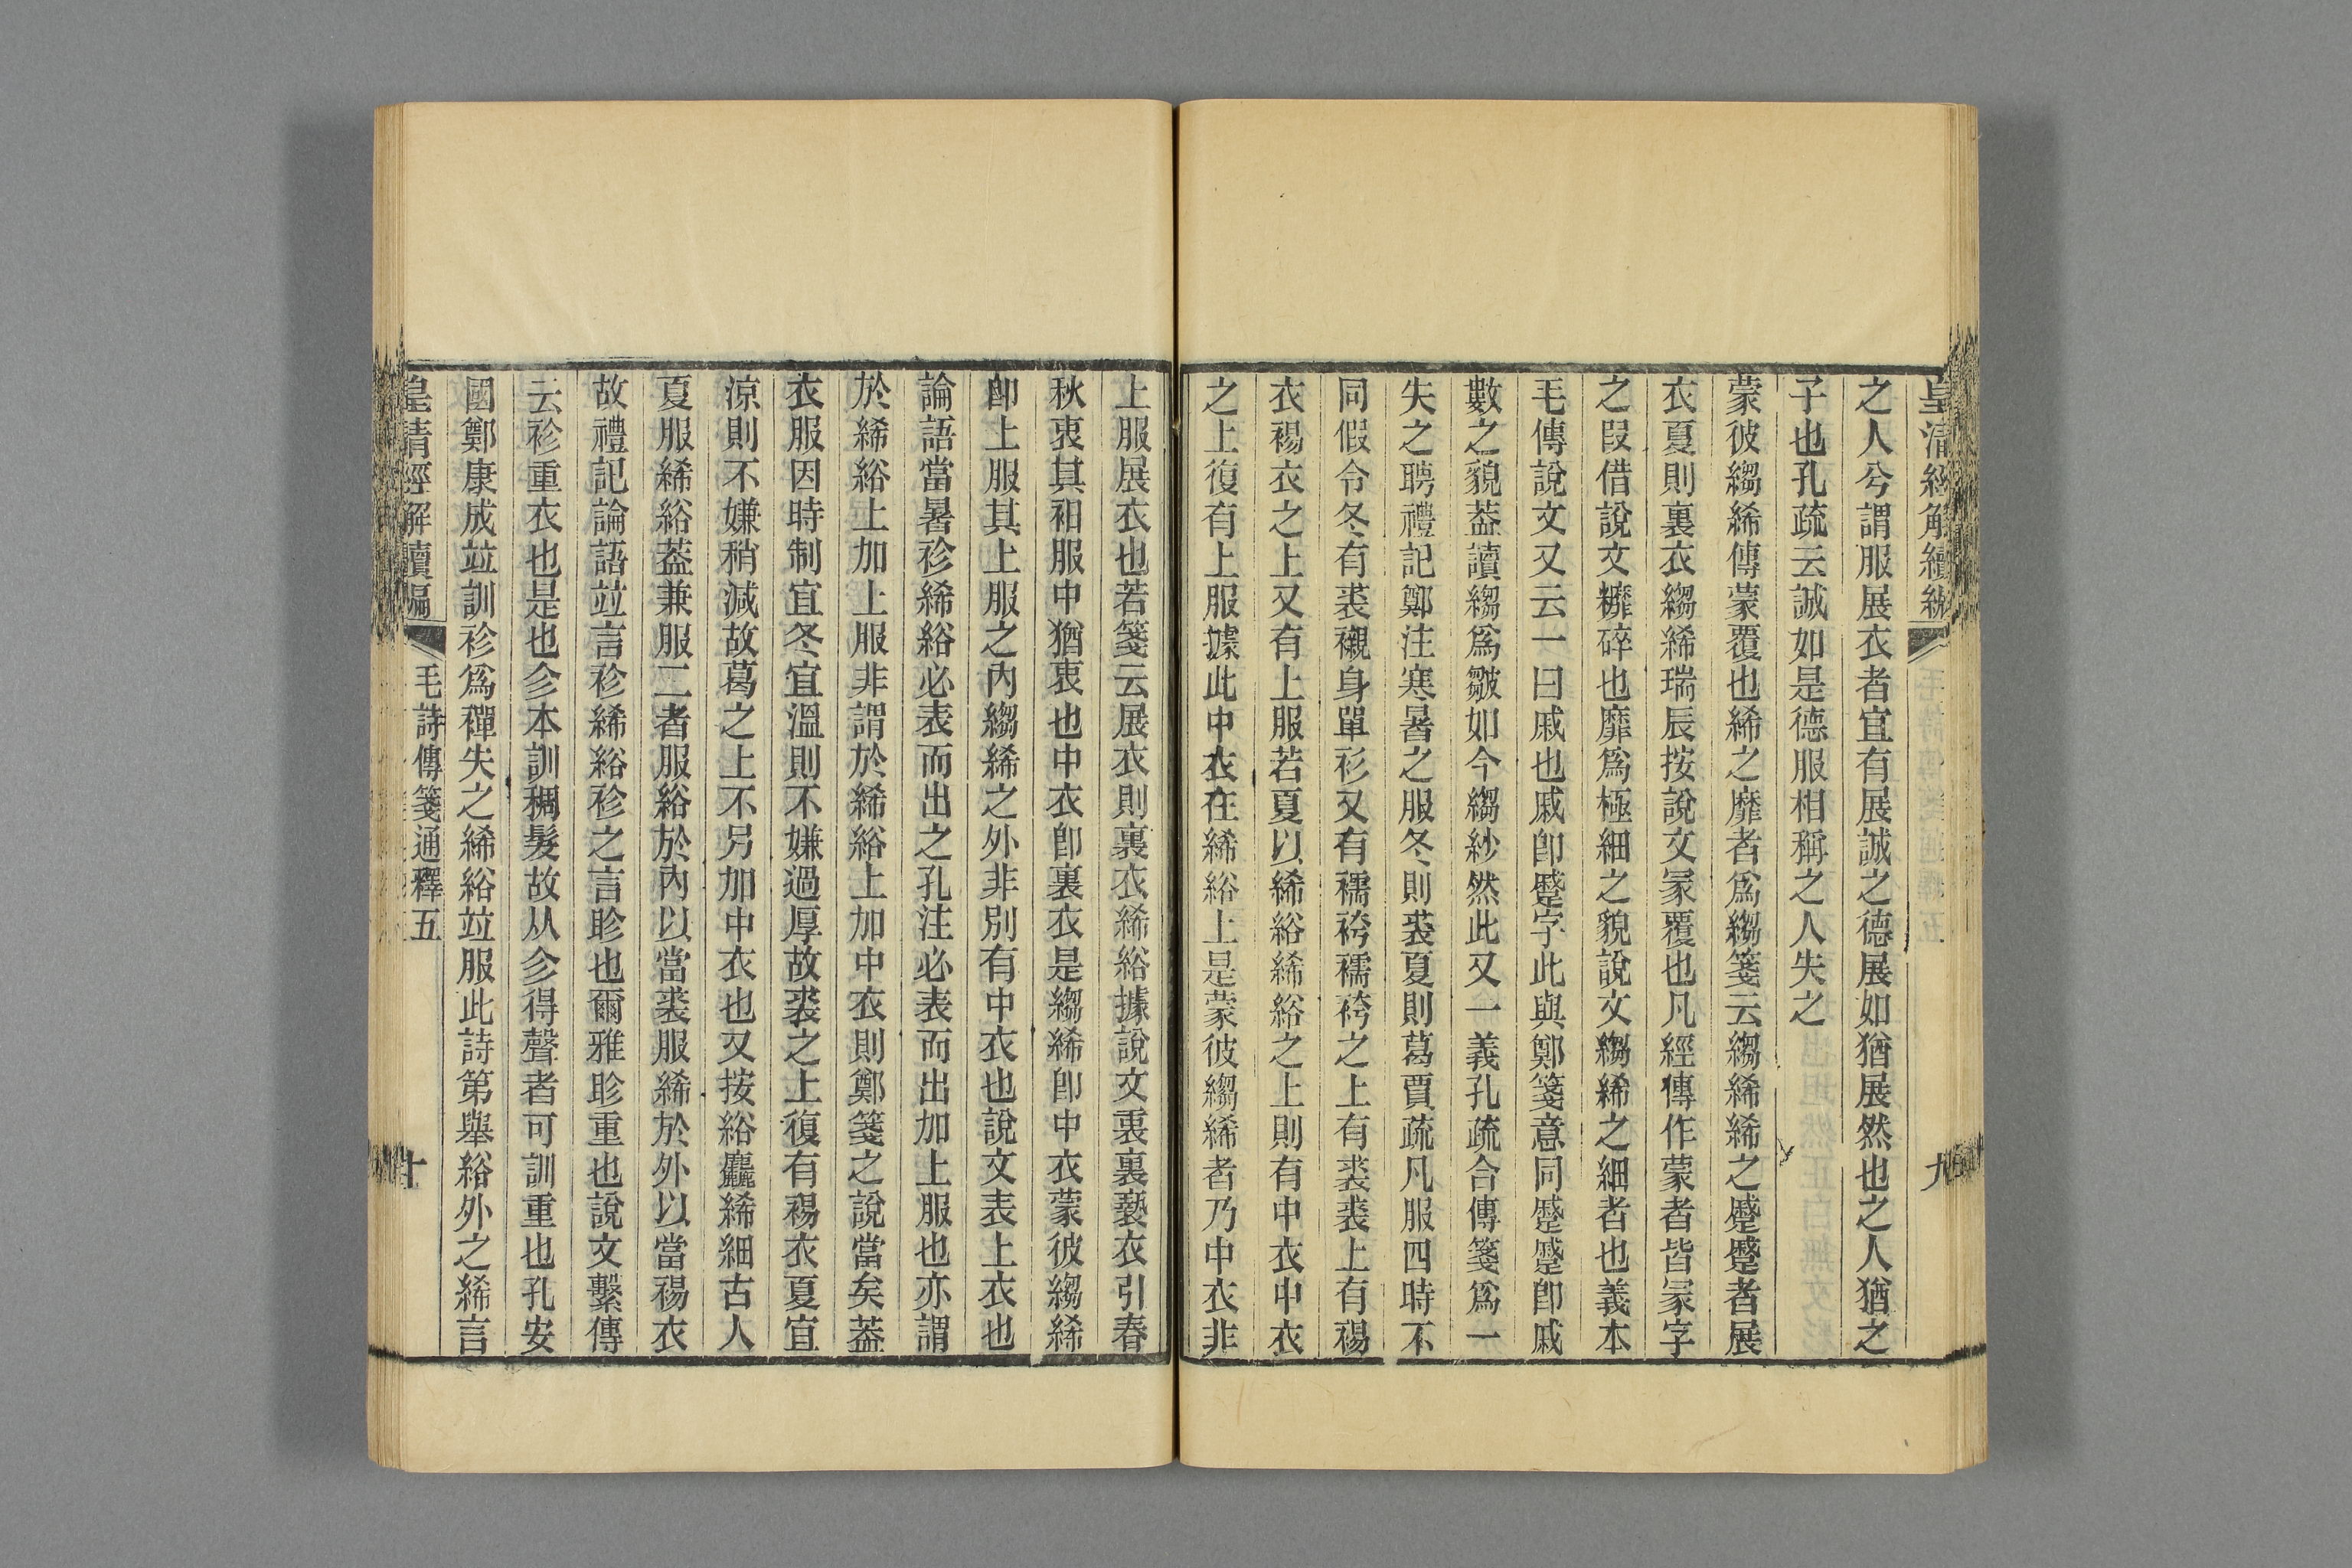 皇清經解續編
九
之人兮謂服展衣者宜有展誠之德展如猶展然也之人猶之
子也孔疏云誠如是德服相稱之人失之
蒙彼縐絺傳蒙覆也絺之靡者爲縐箋云縐絺絺之蹙蹙者展
衣夏則裏衣縐絺瑞辰按說文冡覆也凡經傳作蒙者皆冡字
之叚借說文糠碎也靡爲極細之貌說文縐絺之細者也義本
毛傳說文又云一曰戚也戚卽蹙字此與鄭箋意同蹙蹙卽戚
數之貌葢讀縐爲皺如今縐紗然此又一義孔疏合傳箋爲一
失之聘禮記鄭注寒暑之服冬則裘夏則葛賈疏凡服四時不
同假令冬有裘襯身單衫又有襦袴襦袴之上有裘裘上有裼
衣裼衣之上又有上服若夏以絺綌絺綌之上則有中衣中衣
之上復有上服據此中衣在絺綌上是蒙彼縐絺者乃中衣非
上服展衣也若箋云展衣則裏衣絺綌據說文裏褻衣引春
秋衷其衵服中猶衷也中衣卽裏衣是縐絺卽中衣蒙彼縐絺
卽上服其上服之內縐絺之外非別有中衣也說文表上衣也
論語當暑袗絺綌必表而出之孔注必表而出加上服也亦謂
於絺綌上加上服非謂於絺綌上加中衣則鄭箋之說當矣葢
衣服因時制宜冬宜溫則不嫌過厚故裘之上復有裼衣夏宜
涼則不嫌稍減故葛之上不另加中衣也又按綌麤絺細古人
夏服絺綌葢兼服二者服綌於內以當裘服絺於外以當裼衣
故禮記論語竝言袗絺綌袗之言眕也爾雅眕重也說文繫傳
云袗重衣也是也㐱本訓稠髮故从㐱得聲者可訓重也孔安
國鄭康成竝訓袗爲襌失之絺綌竝服此詩第舉綌外之絺言
皇清經解續編
毛詩傳箋通釋五
十